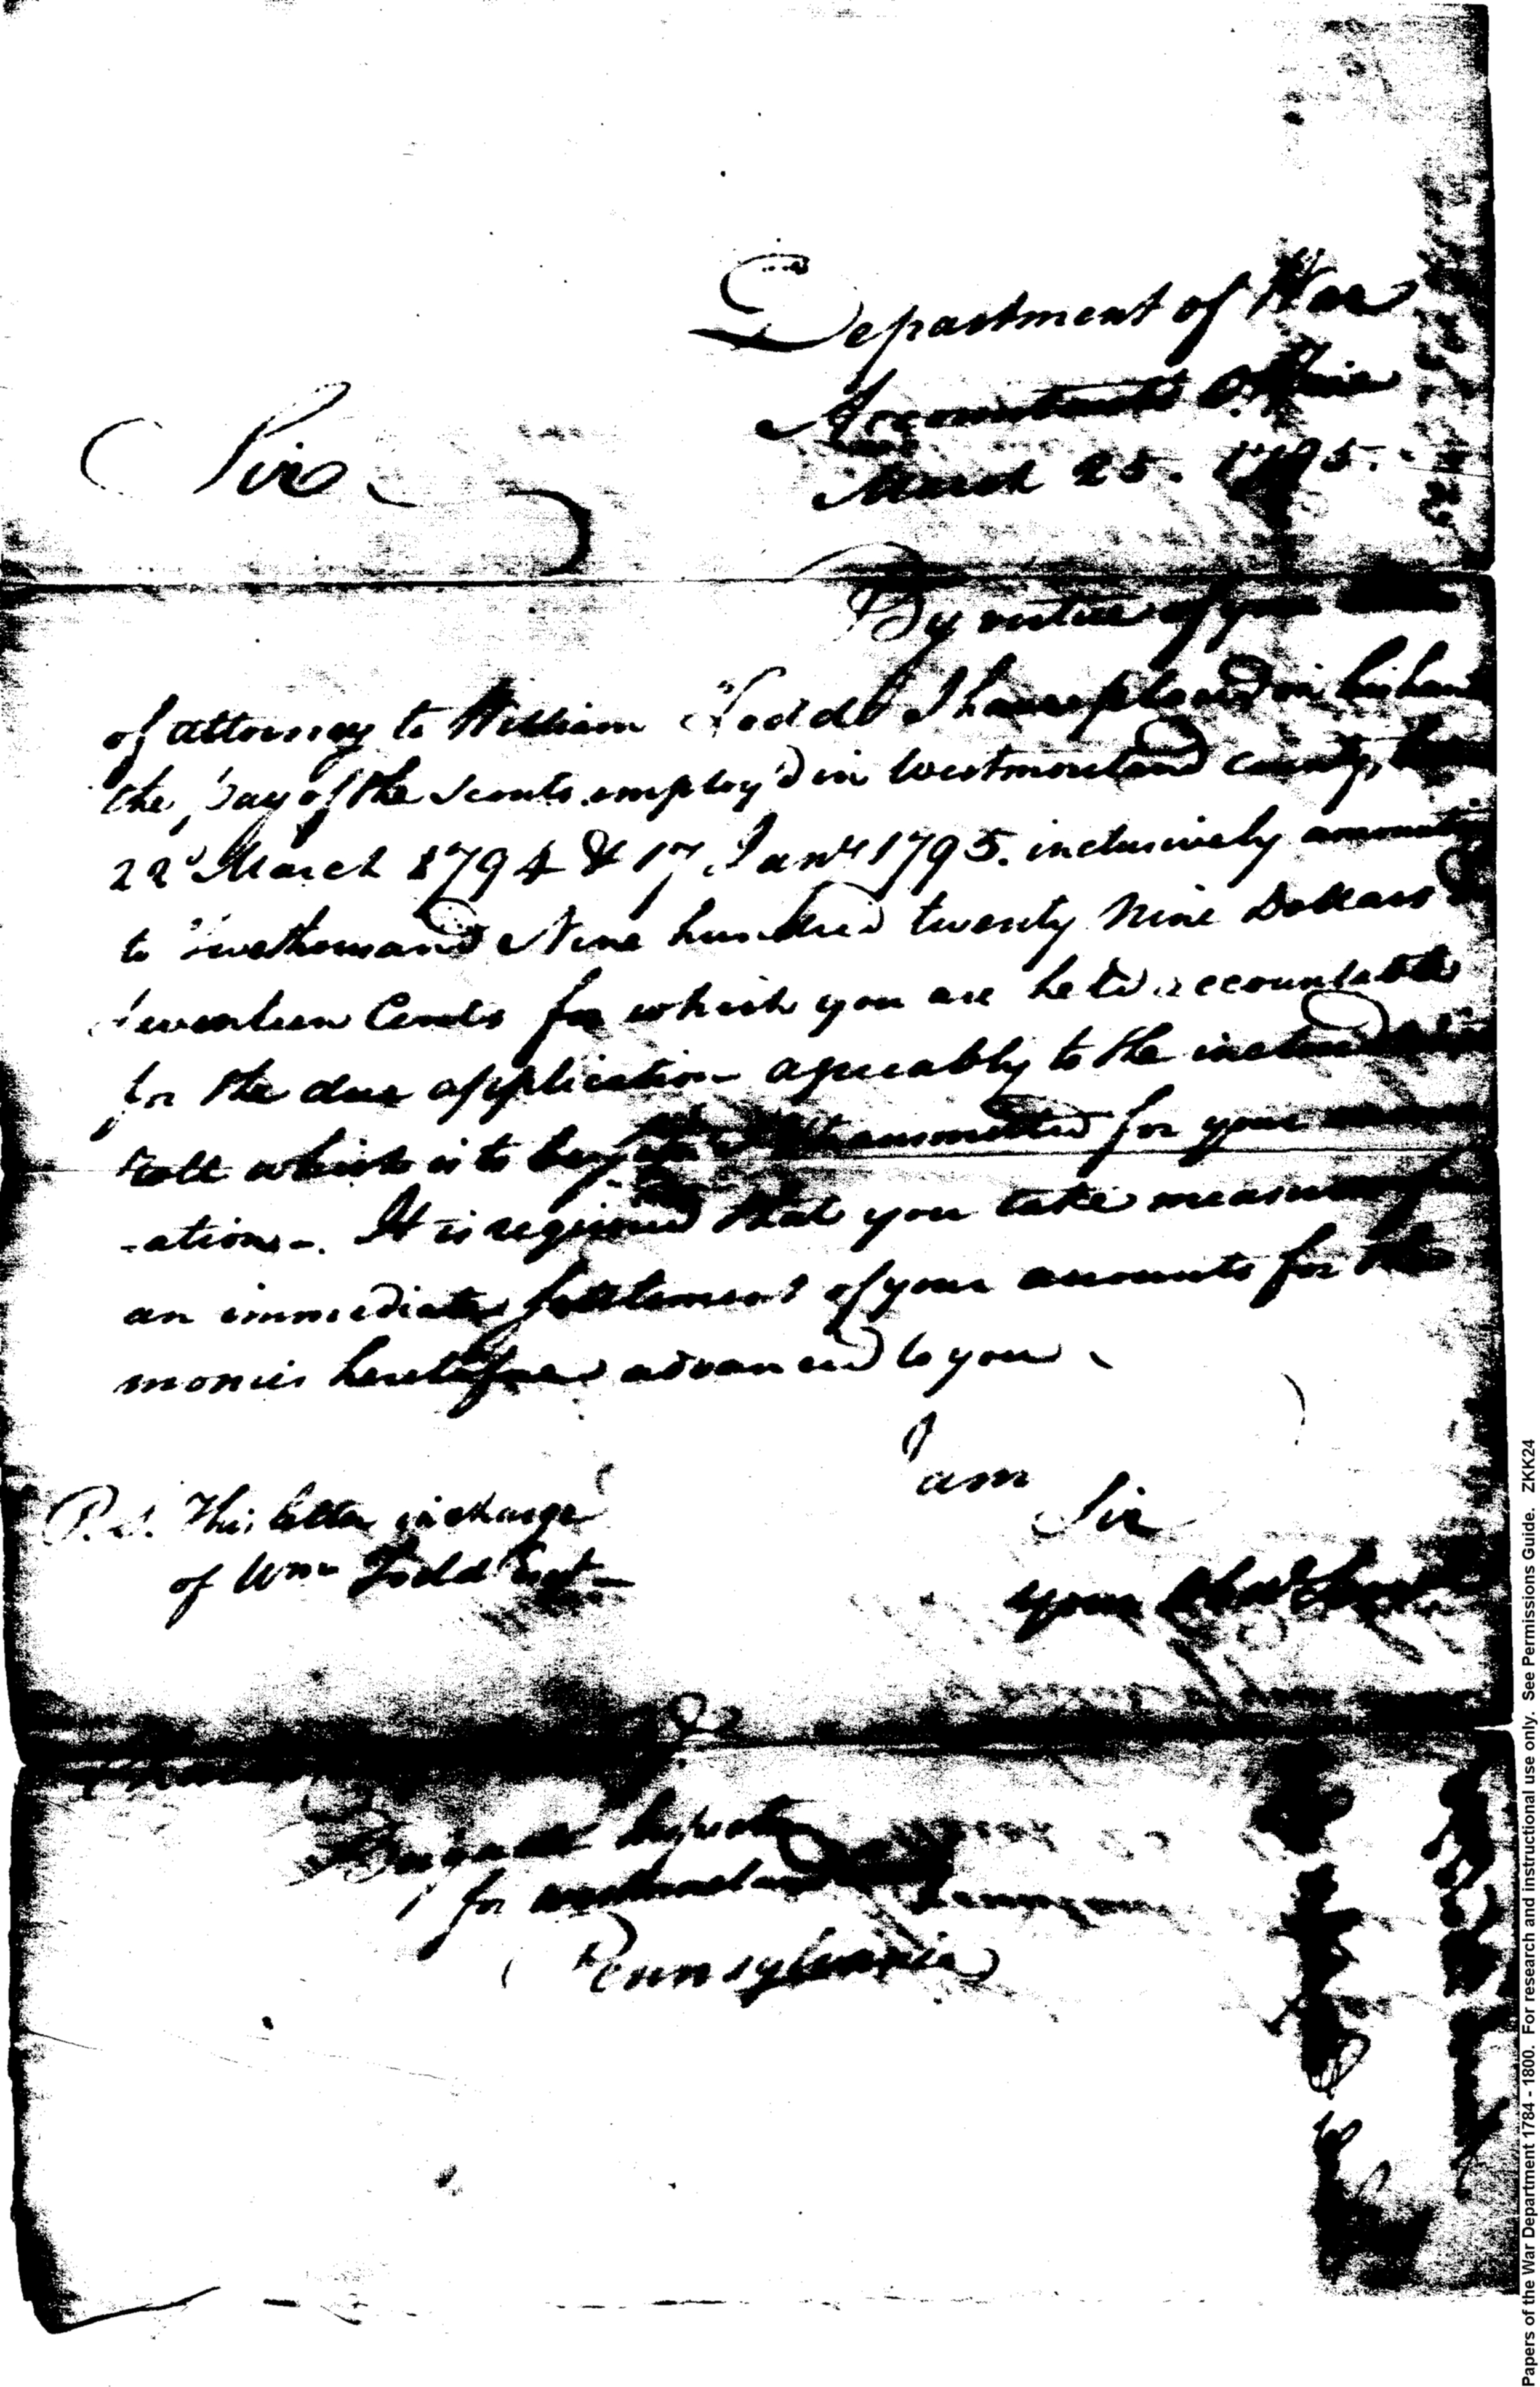 Department of War
Accountants Office
March 25. 1795.
Sir
By virtue of your
of attorney to William Todd I have placed in his hands
the pay of the Scouts employ'd in Westmoreland county,
22d March 1794 & 17 Jany 1795. inclusively
to thousand Nine hundred twenty Nine Dollars
Seventeen Cents for which you are held accountable
for the due application agreeably to the
roll which is to be transmitted for your
-ation-. It is required that you take measures for
an immediate settlement of your accounts for the
monies heretofore advanced to you
I am
Sir
your
P.S. This letter in charge
of Wm Todd Esqr-
Brigade Inspector
for Westmoreland
Pennsylvania
Papers of the War Department 1784 - 1800. For research and instructional use only. See Permissions Guide. ZKK24